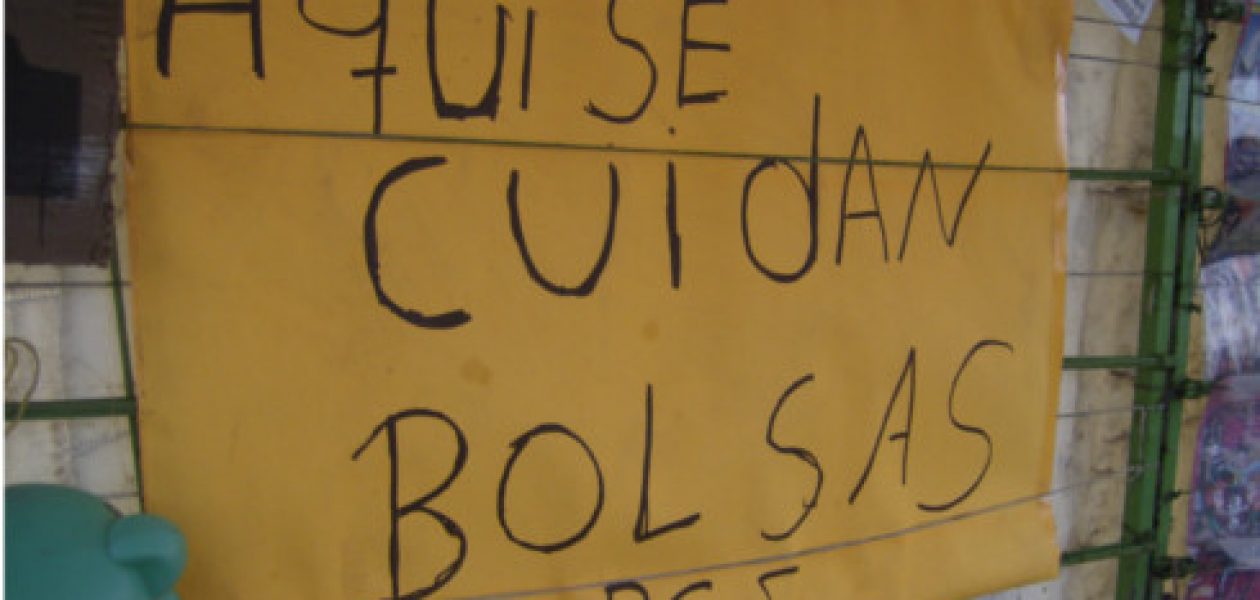 AqUI SE
CUIdAN
BOLSAS